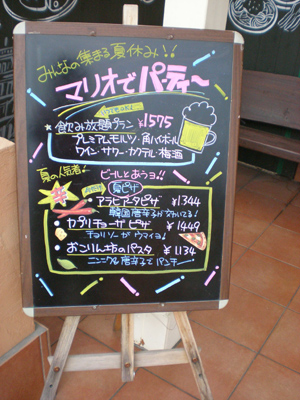 みんなの集まる夏休み!!
マリオでパーティ～
飲み放題プラン ¥1575
プレミアムモルツ・角ハイボール
ワイン・サワー・カクテル・梅酒
夏の人気者!
ビールとあうヨ!!
辛
夏ピザ
アラビアータピザ ¥1344
韓国唐辛子がきいてる!
カプリチョーザピザ ¥1449
チョリソーがウマイョ!
おこりん坊のパスタ ¥1134
ニンニク&唐辛子でパンチ